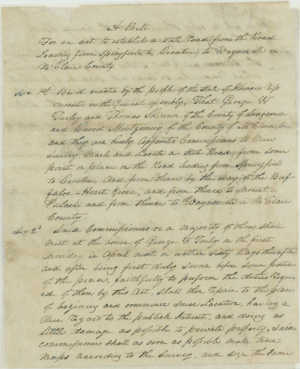 A Bill
For an act to establish a State Road, from the Road
Leading from Springfield to Decatur, to Waynesville in
McClain County
Sec 1st Be it enacted by the people of the State of Illinois Rep
resented in the General assembly, That George W
and Thomas of the County of Sangamon
and David Montgomery of the County of McClain, be
and they are hereby appointed Commissioners to View
Survey Mark and Locate a State Road, from some
point or place on the Road Leading from Springfield
to Decatur, And from thence by the way of the Buf-
falo Hart Grove, and from thence to Mount
Pulaski and from thence to Waynesville in McClain
County
Sec 2d Said Commissioners or a Majority of them shall
Meet at the house of George W on the first
Monday in April next or within Sixty days thereafter
and after being first duly Sworn before some justice
of the peace, faithfully to perform the duties requir
ed of them by this Act, shall then repair to the place
of beginning and commence said Location, having a
due regard to the publick Interest, and doing as
little damage as possible to private property, Said
commissioners shall as soon as possible make two
Maps according to the Survey, and sign the same